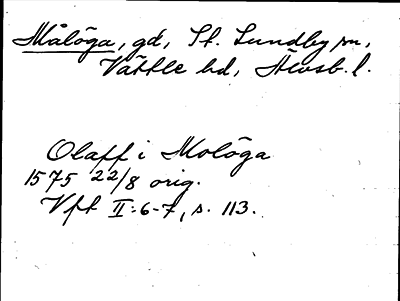 Målöga, gd, St. Lundby sn,
Vättle hd, Älvsb. l.
Olaff i Molöga
1575 22/8 orig.
Vft II:6-7, s. 113.